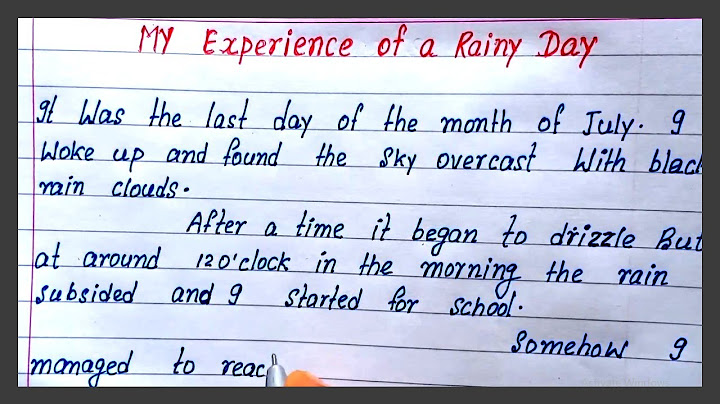 MY Experience of a Rainy Day
It Was the last day of the month of July. I
Woke up and found the Sky overcast With blac
rain clouds.
After a time it began to drizzle But
at around 12 o'clock in the morning the rain
subsided and I started for school.
Somehow I
managed to reac